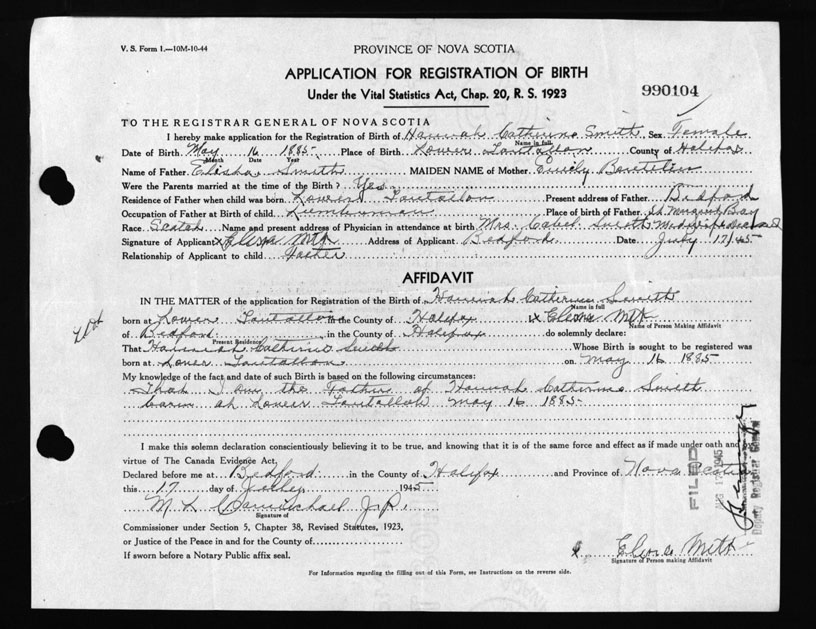 V. S. Form 1.—10M-10-44
PROVINCE OF NOVA SCOTIA
APPLICATION FOR REGISTRATION OF BIRTH
Under the Vital Statistics Act, Chap. 20, R. S. 1923
990104
TO THE REGISTRAR GENERAL OF NOVA SCOTIA
I hereby make application for the Registration of Birth of Hannah Catherine Smith Sex Female
Name in full
Date of Birth May 16 1885 Place of Birth Lower Tantallon County of Halifax
Month Date Year
Name of Father Elisha Smith MAIDEN NAME of Mother Emily Boutilier
Were the Parents married at the time of the Birth? Yes
Residence of Father when child was born Lower Tantallon Present address of Father Bedford
Occupation of Father at Birth of child Lumberman Place of birth of Father St Margaret Bay
Race Scotch Name and present address of Physician in attendance at birth Mrs. Smith Midwife
Signature of Applicant Address of Applicant Bedford Date July 17/45
Relationship of Applicant to child Father
AFFIDAVIT
IN THE MATTER of the application for Registration of the Birth of Hannah Catherine Smith
Name in full
born at Lower Tantallon in the County of Halifax I x
Name of Person Making Affidavit
of Bedford in the County of Halifax do solemnly declare:
Present Residence
That Hannah Catherine Smith Whose Birth is sought to be registered was
born at Lower Tantallon on May 16 1885
My knowledge of the fact and date of such Birth is based on the following circumstances:
That I am the Father of Hannah Catherine Smith
born at Lower Tantallon May 16 1885
I make this solemn declaration conscientiously believing it to be true, and knowing that it is of the same force and effect as if made under oath and by
virtue of The Canada Evidence Act.
Declared before me at Bedford in the County of Halifax and Province of Nova Scotia
this 17 day of July 1945
M L Carmichael J.P.
Signature of
Commissioner under Section 5, Chapter 38, Revised Statutes, 1923,
or Justice of the Peace in and for the County of
If sworn before a Notary Public affix seal.
Signature of Person making Affidavit
For Information regarding the filling out of this Form, see Instructions on the reverse side.
FILED
AUG 17 1945
Deputy Registrar General